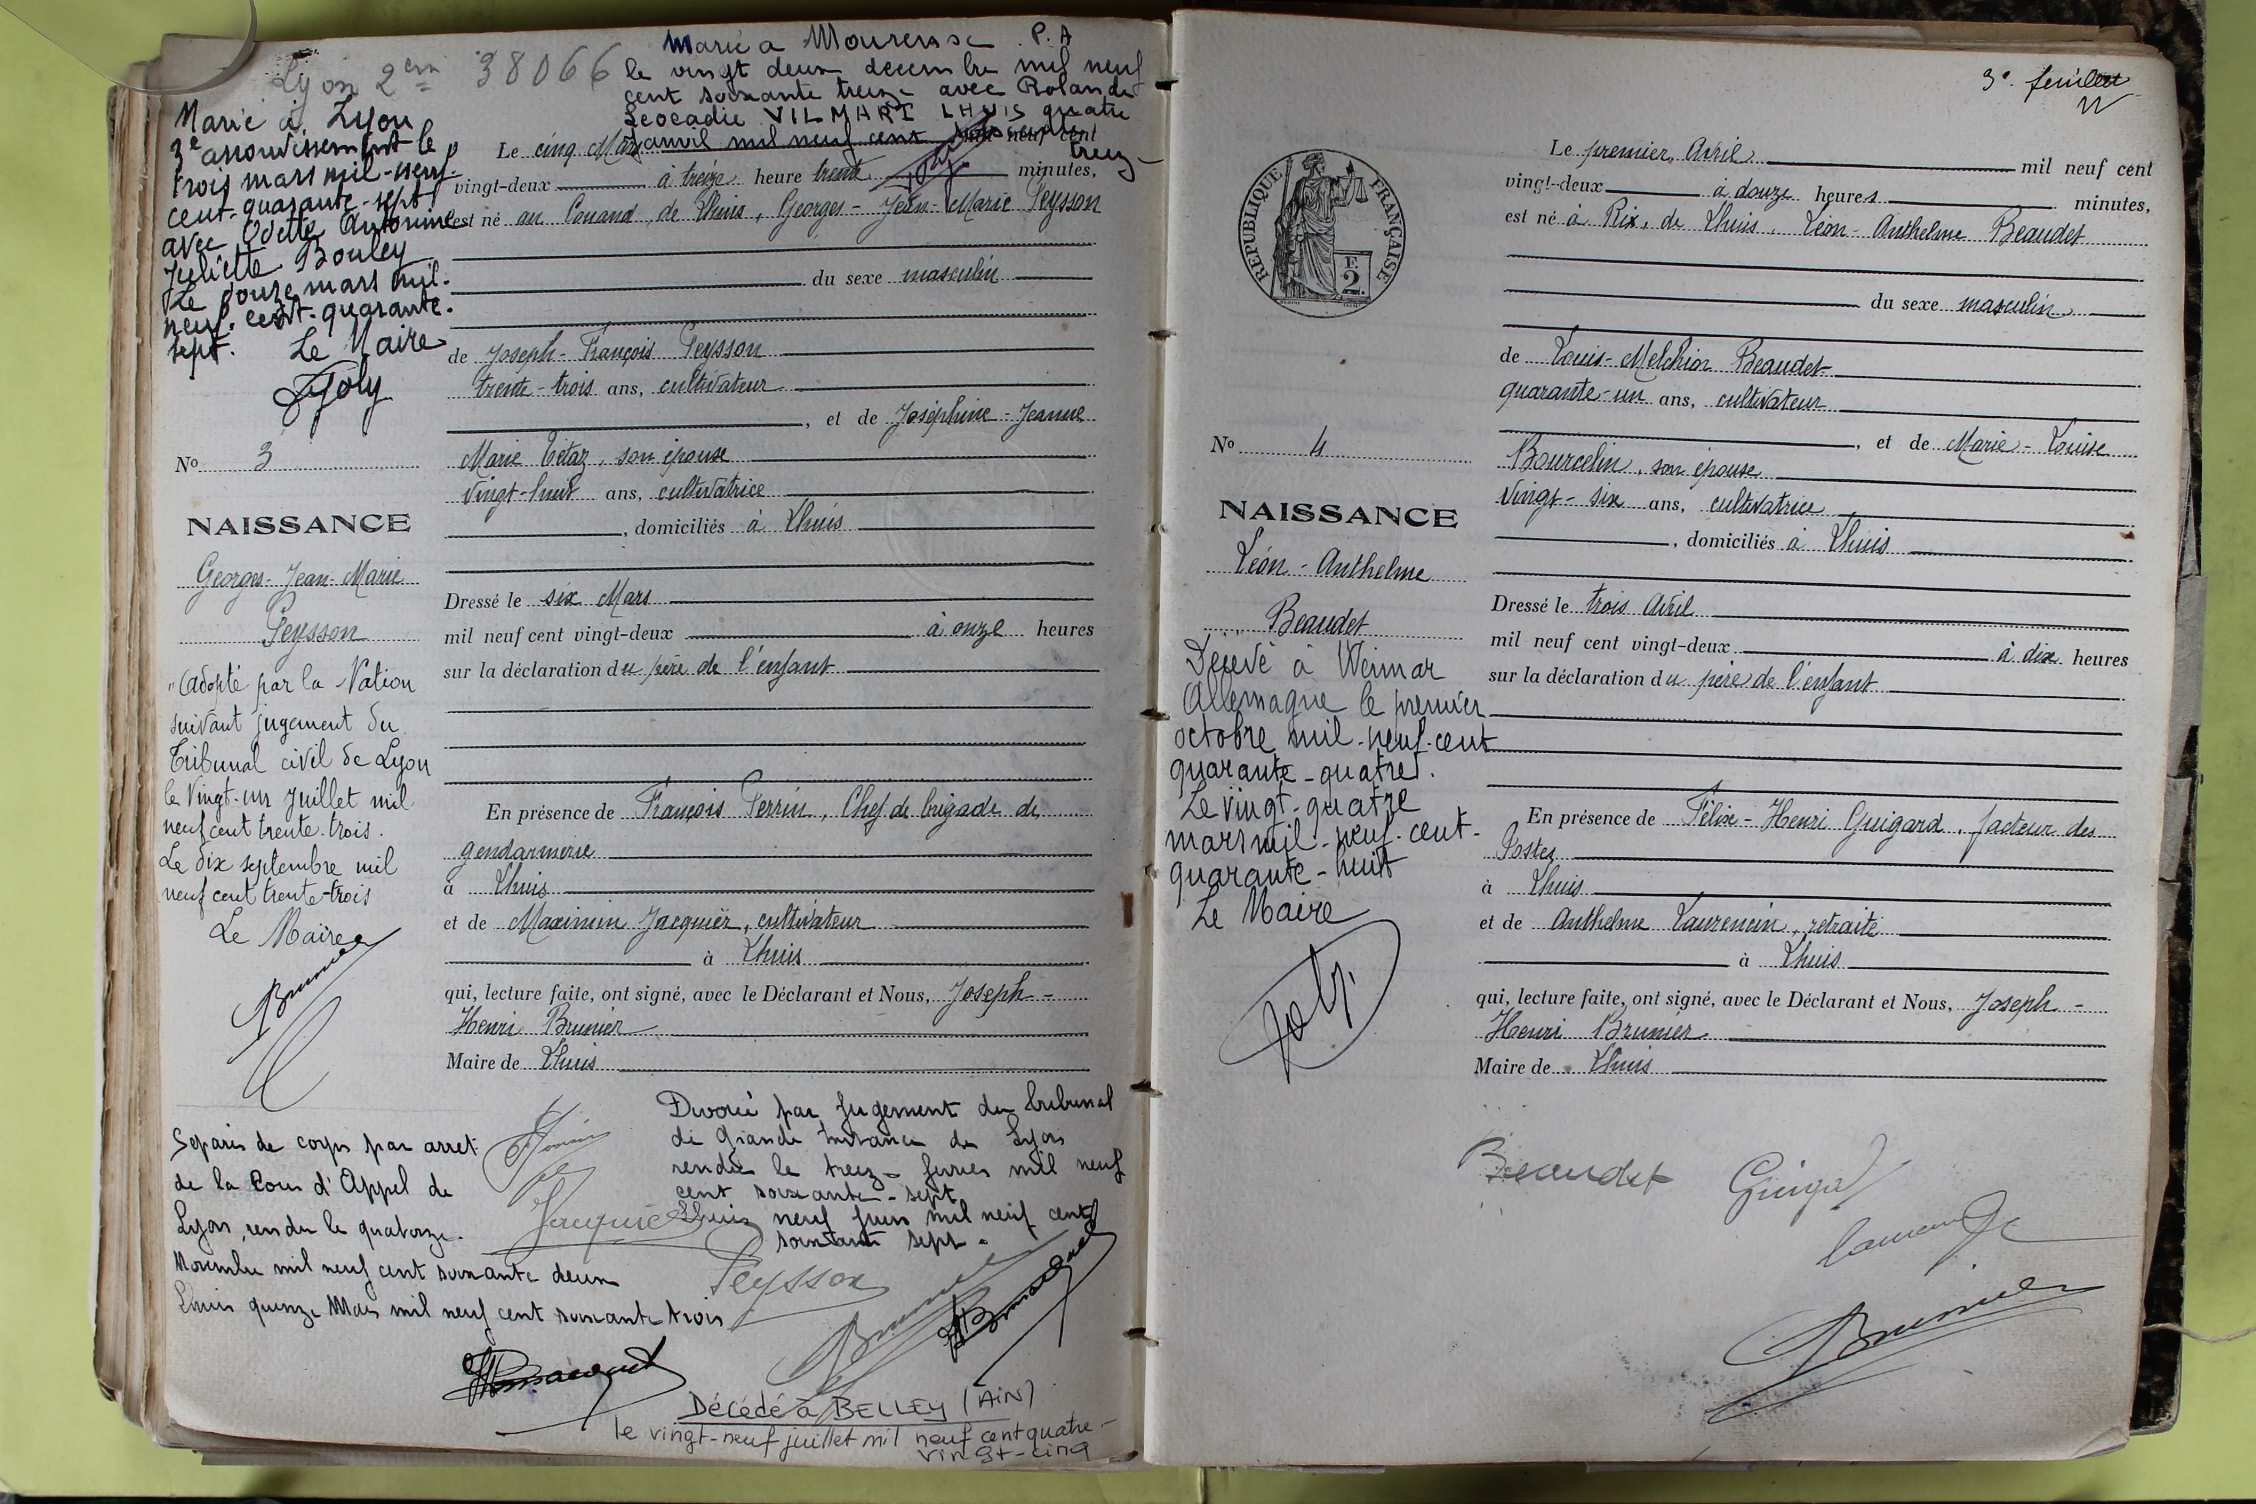 Lyon 2em 38066
Marié à Lyon
3e arrondissement le
trois mars mil-neuf-
cent-quarante-sept
avec Odette Antonine
Juliette Bouley
Le douze mars mil-
neuf-cent-quarante-
sept. Le Maire
Joly
Marié a P.A
le vingt deux decembre mil neuf
cent soixante treize avec Rolande
Leocadie VILMART LHUIS quatre
Janvil mil neuf cent
Le cinq Mars mil neuf cent
vingt-deux à treize heure trente minutes,
est né au Couand, de Lhuis, Georges-Jean-Marie Peysson
du sexe masculin
de Joseph-François Peysson
trente-trois ans, cultivateur
, et de Joséphine-Jeanne
Marie Tétaz, son épouse
vingt-huit ans, cultivatrice
, domiciliés à Lhuis
Dressé le six Mars
mil neuf cent vingt-deux à onze heures
sur la déclaration du père de l'enfant
En présence de François Perrin, Chef de brigade de
gendarmerie
à Lhuis
et de Maximin Jacquier, cultivateur
à Lhuis
qui, lecture faite, ont signé, avec le Déclarant et Nous, Joseph-
Henri Brunier
Maire de Lhuis
No 3
NAISSANCE
Georges-Jean-Marie
Peysson
"Adopté par la Nation
suivant jugement du
Tribunal civil de Lyon
le vingt-un Juillet mil
neuf cent trente-trois.
Le dix septembre mil
neuf cent trente-trois
Le Maire
Brunier
Separés de corps par arret
de la Cour d'Appel de
Lyon, rendu le quatorze
Novembre mil neuf cent soixante deux
Lhuis quinze Mars mil neuf cent soixante trois
Divorcé par Jugement du tribunal
de Grande Instance de Lyon
rendu le treize fevrier mil neuf
cent soixante-sept
Lhuis neuf Juin mil neuf cent
soixante sept.
Jacquier
Peysson
Brunier
Décédé à BELLEY (AIN)
le vingt-neuf juillet mil neuf cent quatre-
vingt-cinq
3e feuillet
RÉPUBLIQUE FRANÇAISE
F.
2.
Le premier Avril mil neuf cent
vingt-deux à douze heures minutes,
est né à Rix, de Lhuis, Léon-Anthelme Beaudet
du sexe masculin
de Louis-Melchior Beaudet
quarante-un ans, cultivateur
, et de Marie-Louise
Bourcelin, son épouse
vingt-six ans, cultivatrice
, domiciliés à Lhuis
Dressé le trois Avril
mil neuf cent vingt-deux à dix heures
sur la déclaration du père de l'enfant
En présence de Félix-Henri Guigard, facteur des
Postes
à Lhuis
et de Anthelme Laurencin, retraité
à Lhuis
qui, lecture faite, ont signé, avec le Déclarant et Nous, Joseph-
Henri Brunier
Maire de Lhuis
No 4
NAISSANCE
Léon-Anthelme
Beaudet
Décédé à Weimar
Allemagne le premier
octobre mil-neuf-cent
quarante-quatre.
Le vingt-quatre
mars mil-neuf-cent-
quarante-huit
Le Maire
Joly
Beaudet
Brunier